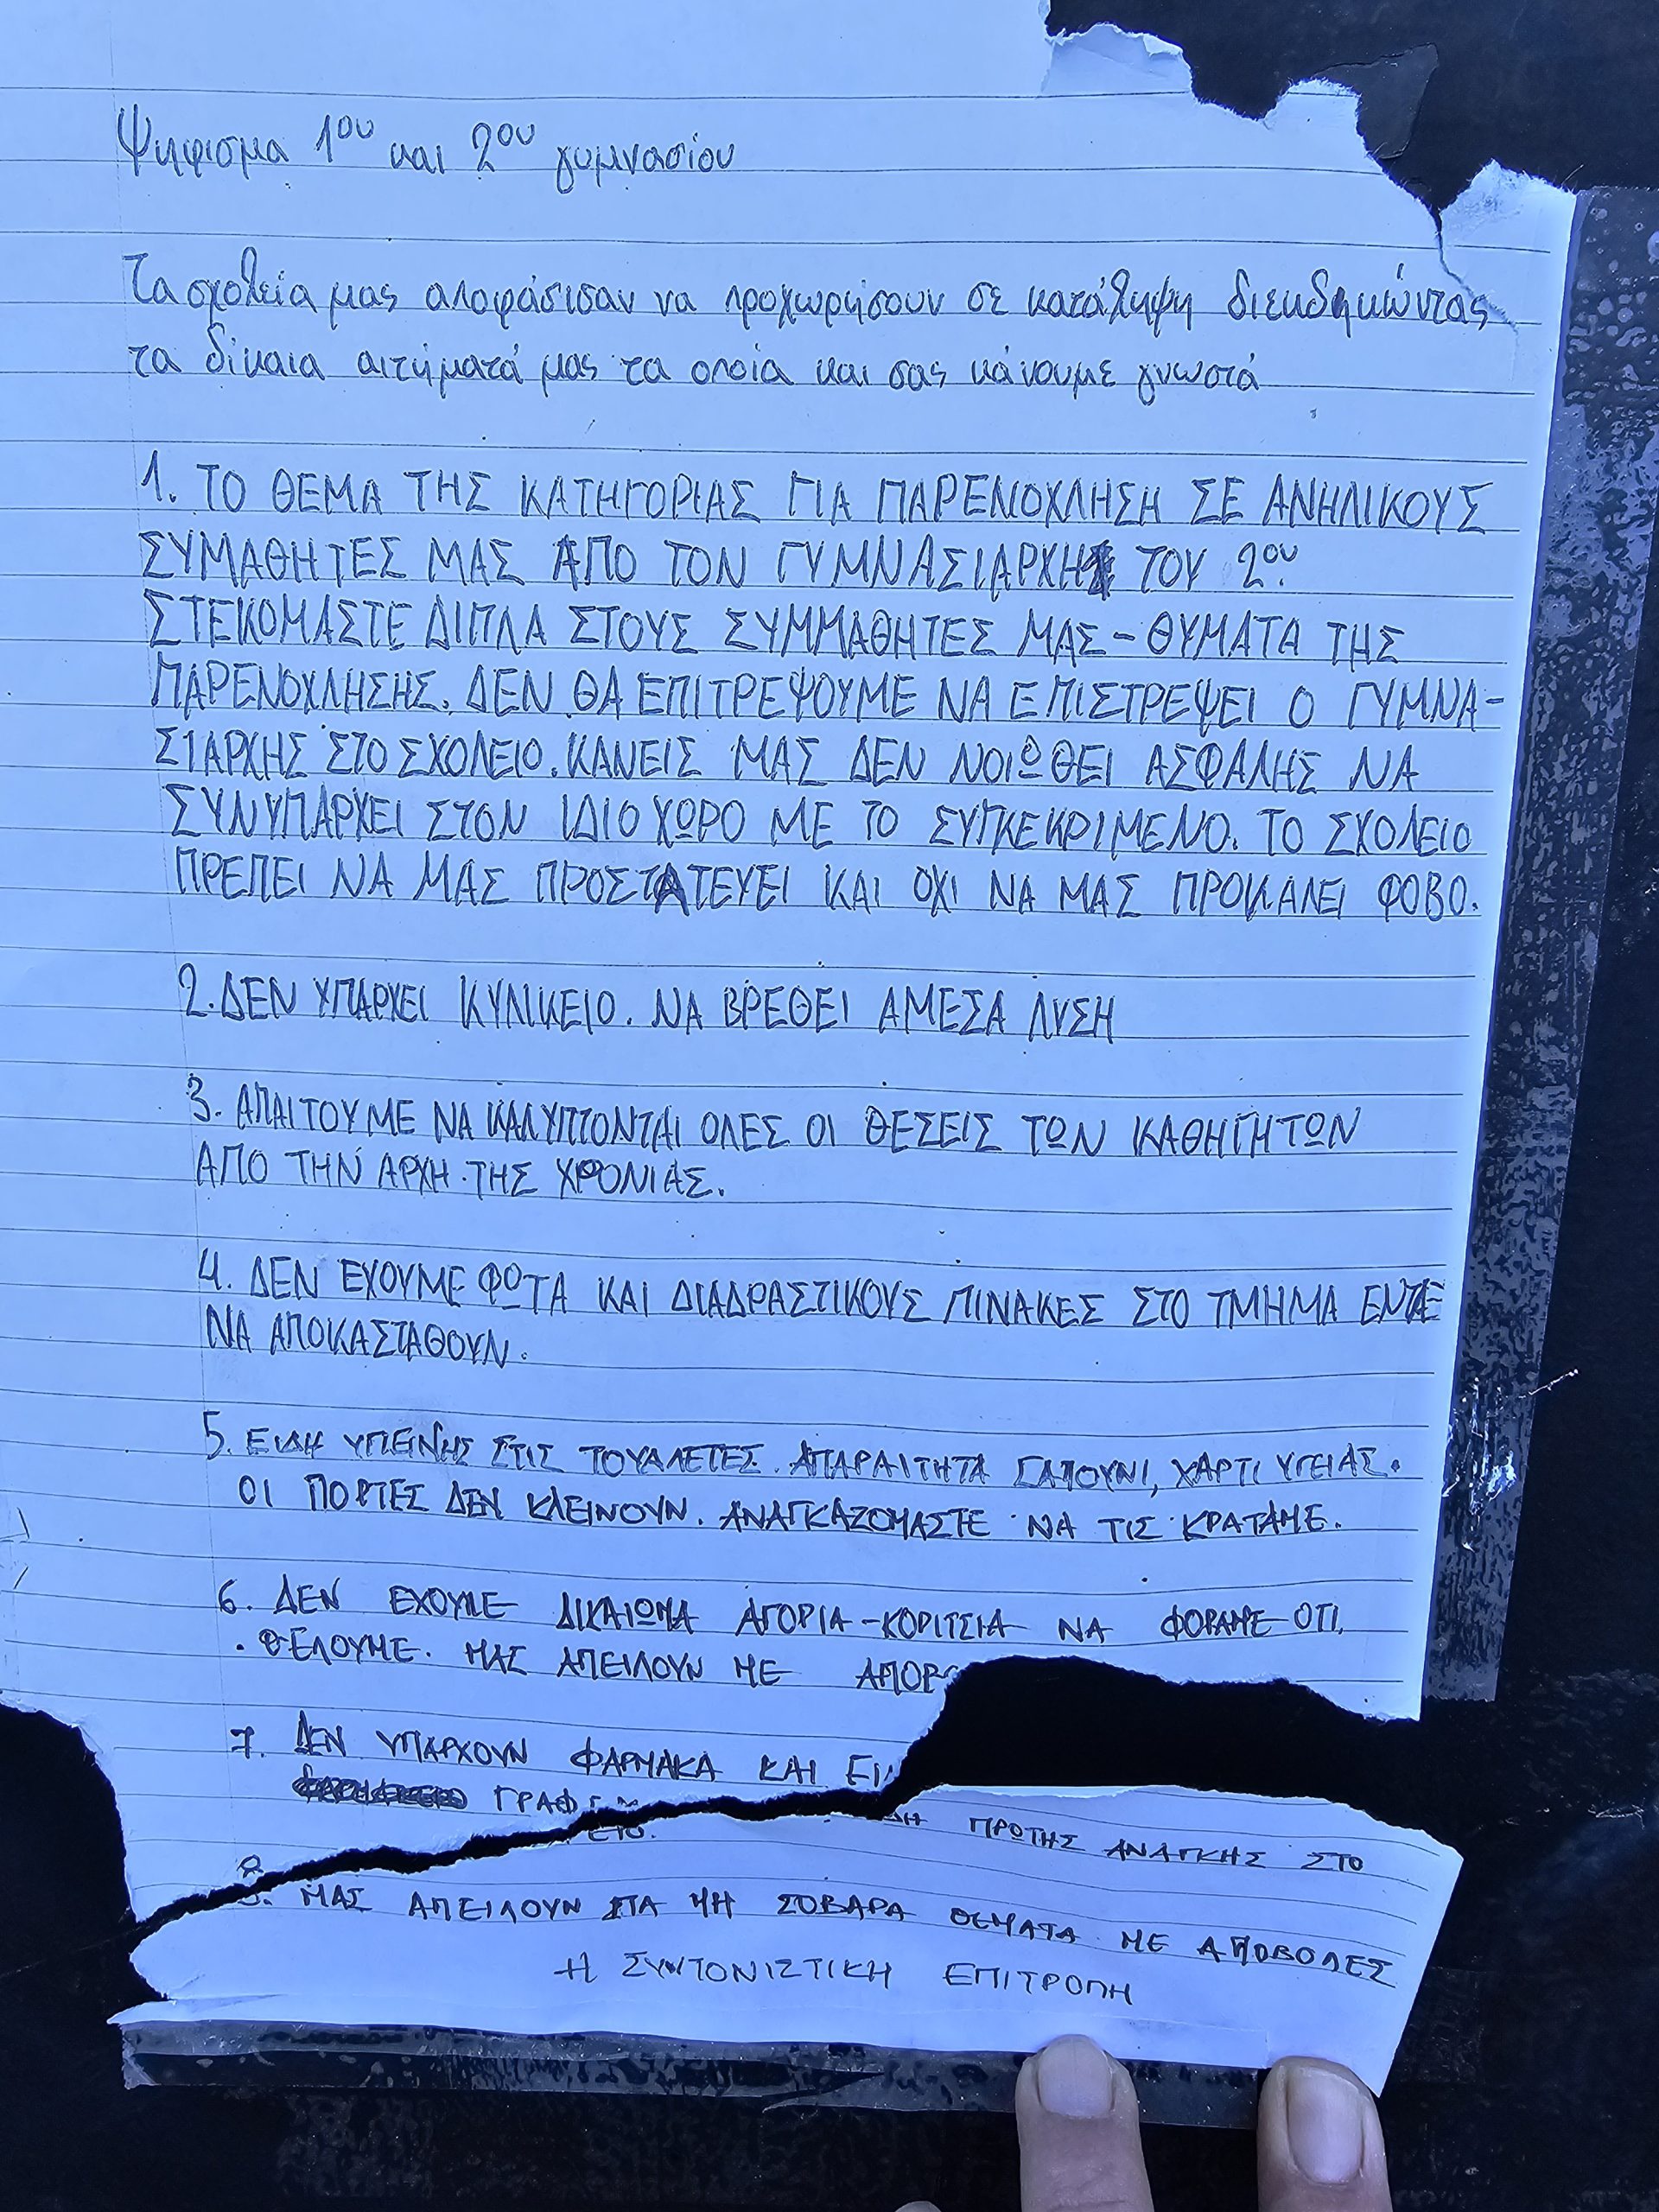 Ψηφισμα 1ου και 2ου γυμνασίου
Τα σχολεία μας αποφάσισαν να προχωρήσουν σε κατάληψη διεκδηκώντας
τα δίκαια αιτήματά μας τα οποία και σας κάνουμε γνωστά
1. ΤΟ ΘΕΜΑ ΤΗΣ ΚΑΤΗΓΟΡΙΑΣ ΓΙΑ ΠΑΡΕΝΟΧΛΗΣΗ ΣΕ ΑΝΗΛΙΚΟΥΣ
ΣΥΜΑΘΗΤΕΣ ΜΑΣ ΑΠΟ ΤΟΝ ΓΥΜΝΑΣΙΑΡΧΗ ΤΟΥ 2ου.
ΣΤΕΚΟΜΑΣΤΕ ΔΙΠΛΑ ΣΤΟΥΣ ΣΥΜΜΑΘΗΤΕΣ ΜΑΣ - ΘΥΜΑΤΑ ΤΗΣ
ΠΑΡΕΝΟΧΛΗΣΗΣ. ΔΕΝ ΘΑ ΕΠΙΤΡΕΨΟΥΜΕ ΝΑ ΕΠΙΣΤΡΕΨΕΙ Ο ΓΥΜΝΑ-
ΣΙΑΡΧΗΣ ΣΤΟ ΣΧΟΛΕΙΟ. ΚΑΝΕΙΣ ΜΑΣ ΔΕΝ ΝΟΙΩΘΕΙ ΑΣΦΑΛΗΣ ΝΑ
ΣΥΝΥΠΑΡΧΕΙ ΣΤΟΝ ΙΔΙΟ ΧΩΡΟ ΜΕ ΤΟ ΣΥΓΚΕΚΡΙΜΕΝΟ. ΤΟ ΣΧΟΛΕΙΟ
ΠΡΕΠΕΙ ΝΑ ΜΑΣ ΠΡΟΣΤΑΤΕΥΕΙ ΚΑΙ ΟΧΙ ΝΑ ΜΑΣ ΠΡΟΚΑΛΕΙ ΦΟΒΟ.
2. ΔΕΝ ΥΠΑΡΧΕΙ ΚΥΛΙΚΕΙΟ. ΝΑ ΒΡΕΘΕΙ ΑΜΕΣΑ ΛΥΣΗ
3. ΑΠΑΙΤΟΥΜΕ ΝΑ ΚΑΛΥΠΤΟΝΤΑΙ ΟΛΕΣ ΟΙ ΘΕΣΕΙΣ ΤΩΝ ΚΑΘΗΓΗΤΩΝ
ΑΠΟ ΤΗΝ ΑΡΧΗ ΤΗΣ ΧΡΟΝΙΑΣ.
4. ΔΕΝ ΕΧΟΥΜΕ ΦΩΤΑ ΚΑΙ ΔΙΑΔΡΑΣΤΙΚΟΥΣ ΠΙΝΑΚΕΣ ΣΤΟ ΤΜΗΜΑ ΕΝΤΑΞΗΣ
ΝΑ ΑΠΟΚΑΣΤΑΘΟΥΝ.
5. ΕΙΔΗ ΥΓΕΙΝΗΣ ΣΤΙΣ ΤΟΥΑΛΕΤΕΣ. ΑΠΑΡΑΙΤΗΤΑ ΣΑΠΟΥΝΙ, ΧΑΡΤΙ ΥΓΕΙΑΣ.
ΟΙ ΠΟΡΤΕΣ ΔΕΝ ΚΛΕΙΝΟΥΝ. ΑΝΑΓΚΑΖΟΜΑΣΤΕ ΝΑ ΤΙΣ ΚΡΑΤΑΜΕ.
6. ΔΕΝ ΕΧΟΥΜΕ ΔΙΚΑΙΩΜΑ ΑΓΟΡΙΑ-ΚΟΡΙΤΣΙΑ ΝΑ ΦΟΡΑΜΕ ΟΤΙ
ΘΕΛΟΥΜΕ. ΜΑΣ ΑΠΕΙΛΟΥΝ ΜΕ
7. ΔΕΝ ΥΠΑΡΧΟΥΝ ΦΑΡΜΑΚΑ ΚΑΙ ΕΙΔΗ ΠΡΩΤΗΣ ΑΝΑΓΚΗΣ ΣΤΟ
ΓΡΑΦΕΙΟ.
8. ΜΑΣ ΑΠΕΙΛΟΥΝ ΓΙΑ ΜΗ ΣΟΒΑΡΑ ΘΕΜΑΤΑ ΜΕ ΑΠΟΒΟΛΕΣ
Η ΣΥΝΤΟΝΙΣΤΙΚΗ ΕΠΙΤΡΟΠΗ